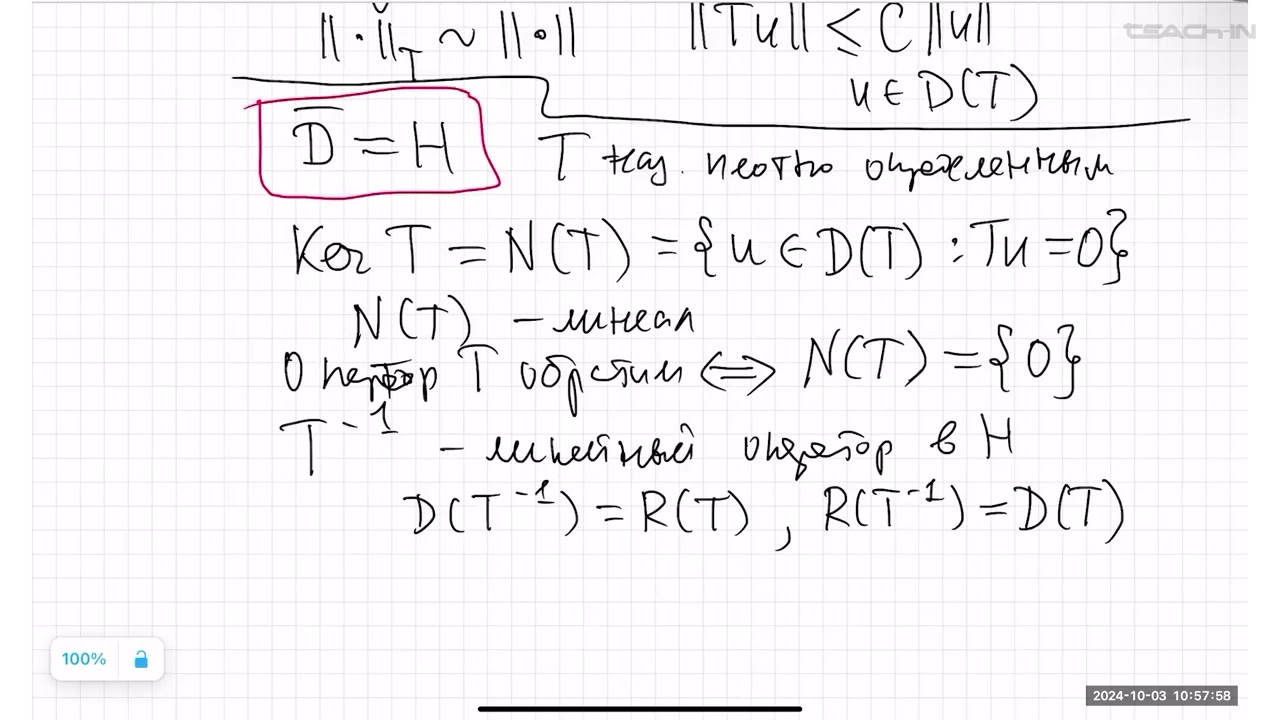 ‖·‖_T ~ ‖·‖ ‖Tu‖ ≤ C‖u‖
TEACH-IN
u ∈ D(T)
D̅ = H T наз. плотно определенным
Ker T = N(T) = {u ∈ D(T) : Tu = 0}
N(T) – линеал
Оператор T обратим ⟺ N(T) = {0}
T⁻¹ – линейный оператор в H
D(T⁻¹) = R(T), R(T⁻¹) = D(T)
100%
2024-10-03 10:57:58